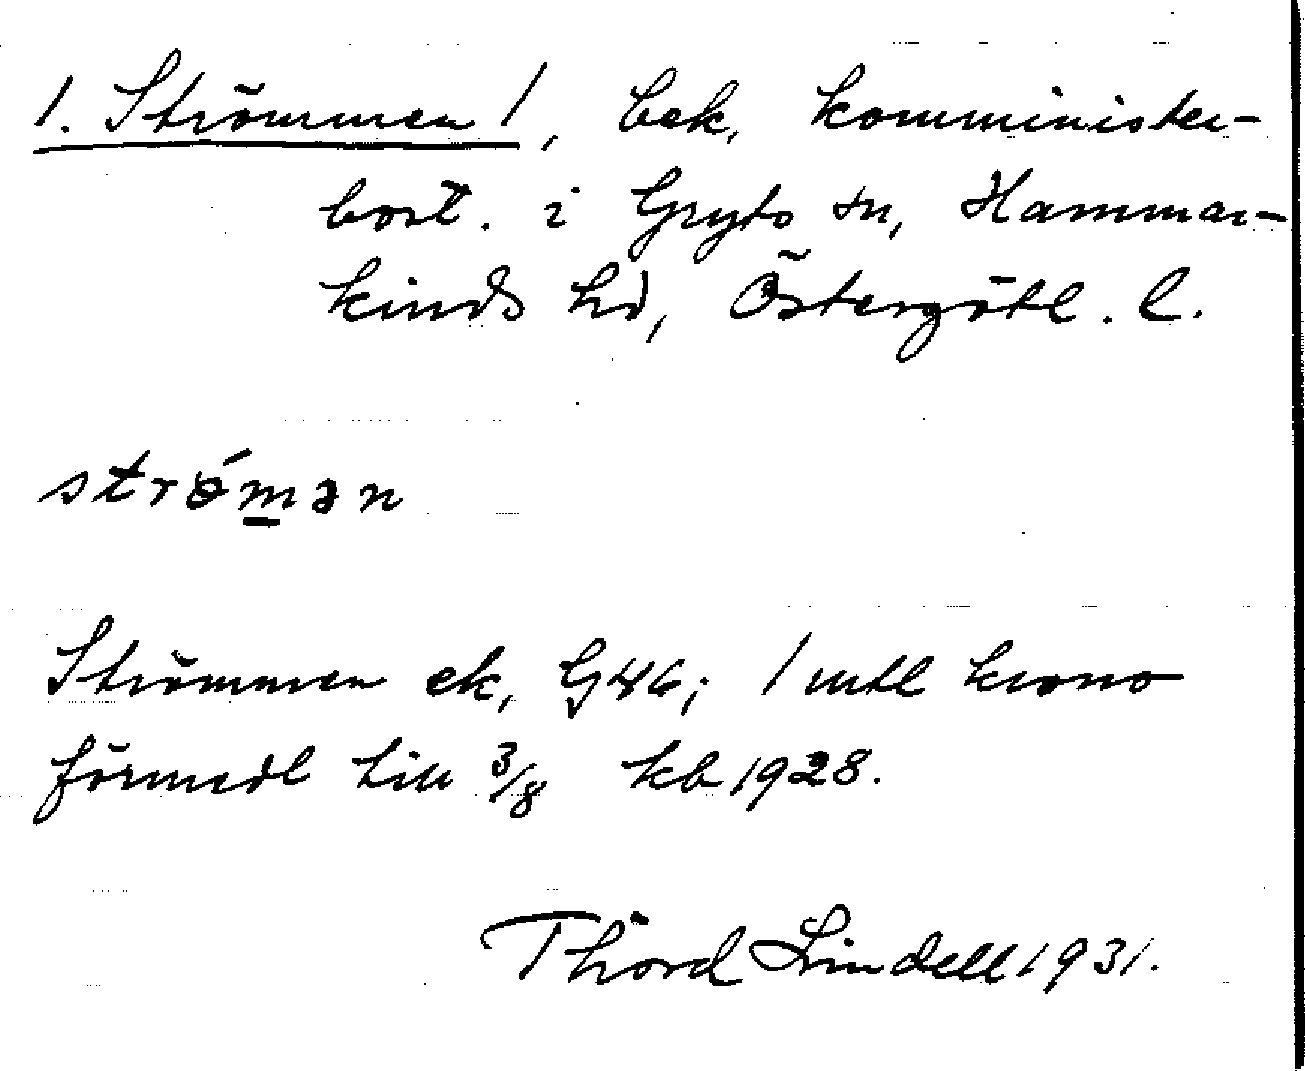 1. Strömmen 1, bek, komminister-
bost. i Gryts sn, Hammar-
kinds hd, Östergötl. l.
strǿm̲ən
Strömmen ek, G46; 1 mtl krono
förmedl till 3/8 kb 1928.
Thord Lindell 1931.